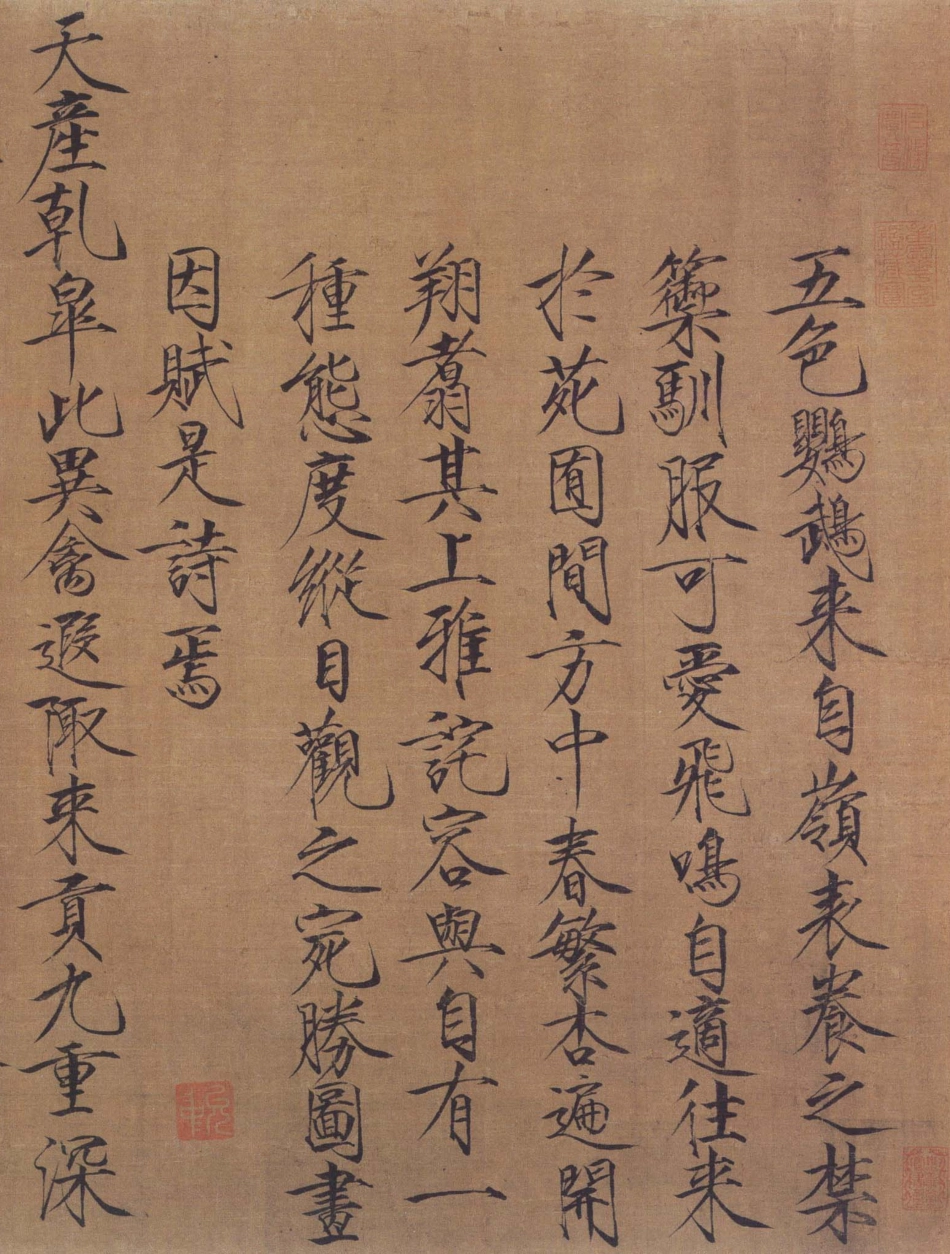 五色鸚鵡来自嶺表養之禁
籞馴服可愛飛鳴自適往来
於苑囿間方中春繁杏遍開
翔翥其上雅詫容與自有一
種態度縱目觀之宛勝圖畫
因賦是詩焉
天產乾皋此異禽遐陬来貢九重深